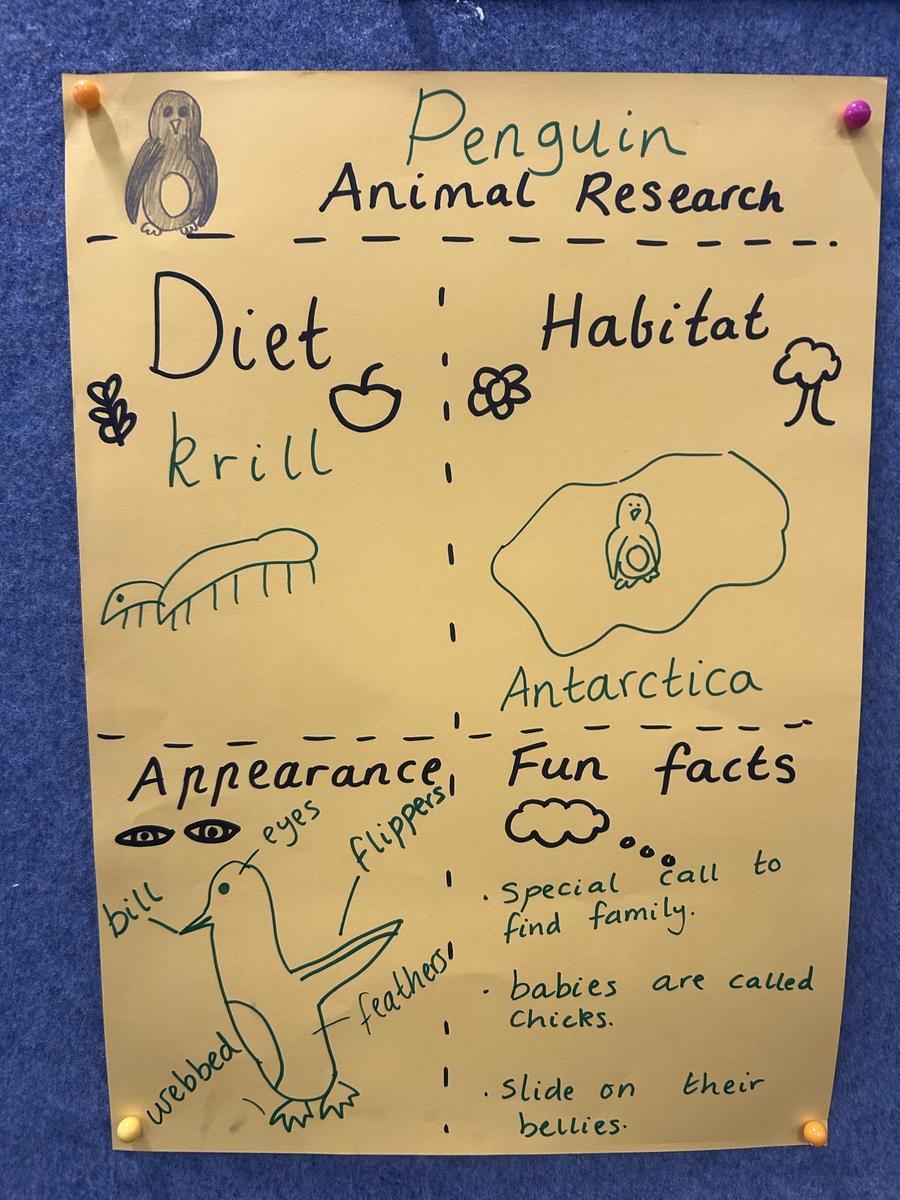 Penguin
Animal Research
Diet
krill
Habitat
Antarctica
Appearance
eyes
flippers
bill
feathers
webbed
Fun facts
· special call to
find family.
· babies are called
chicks.
· slide on their
bellies.